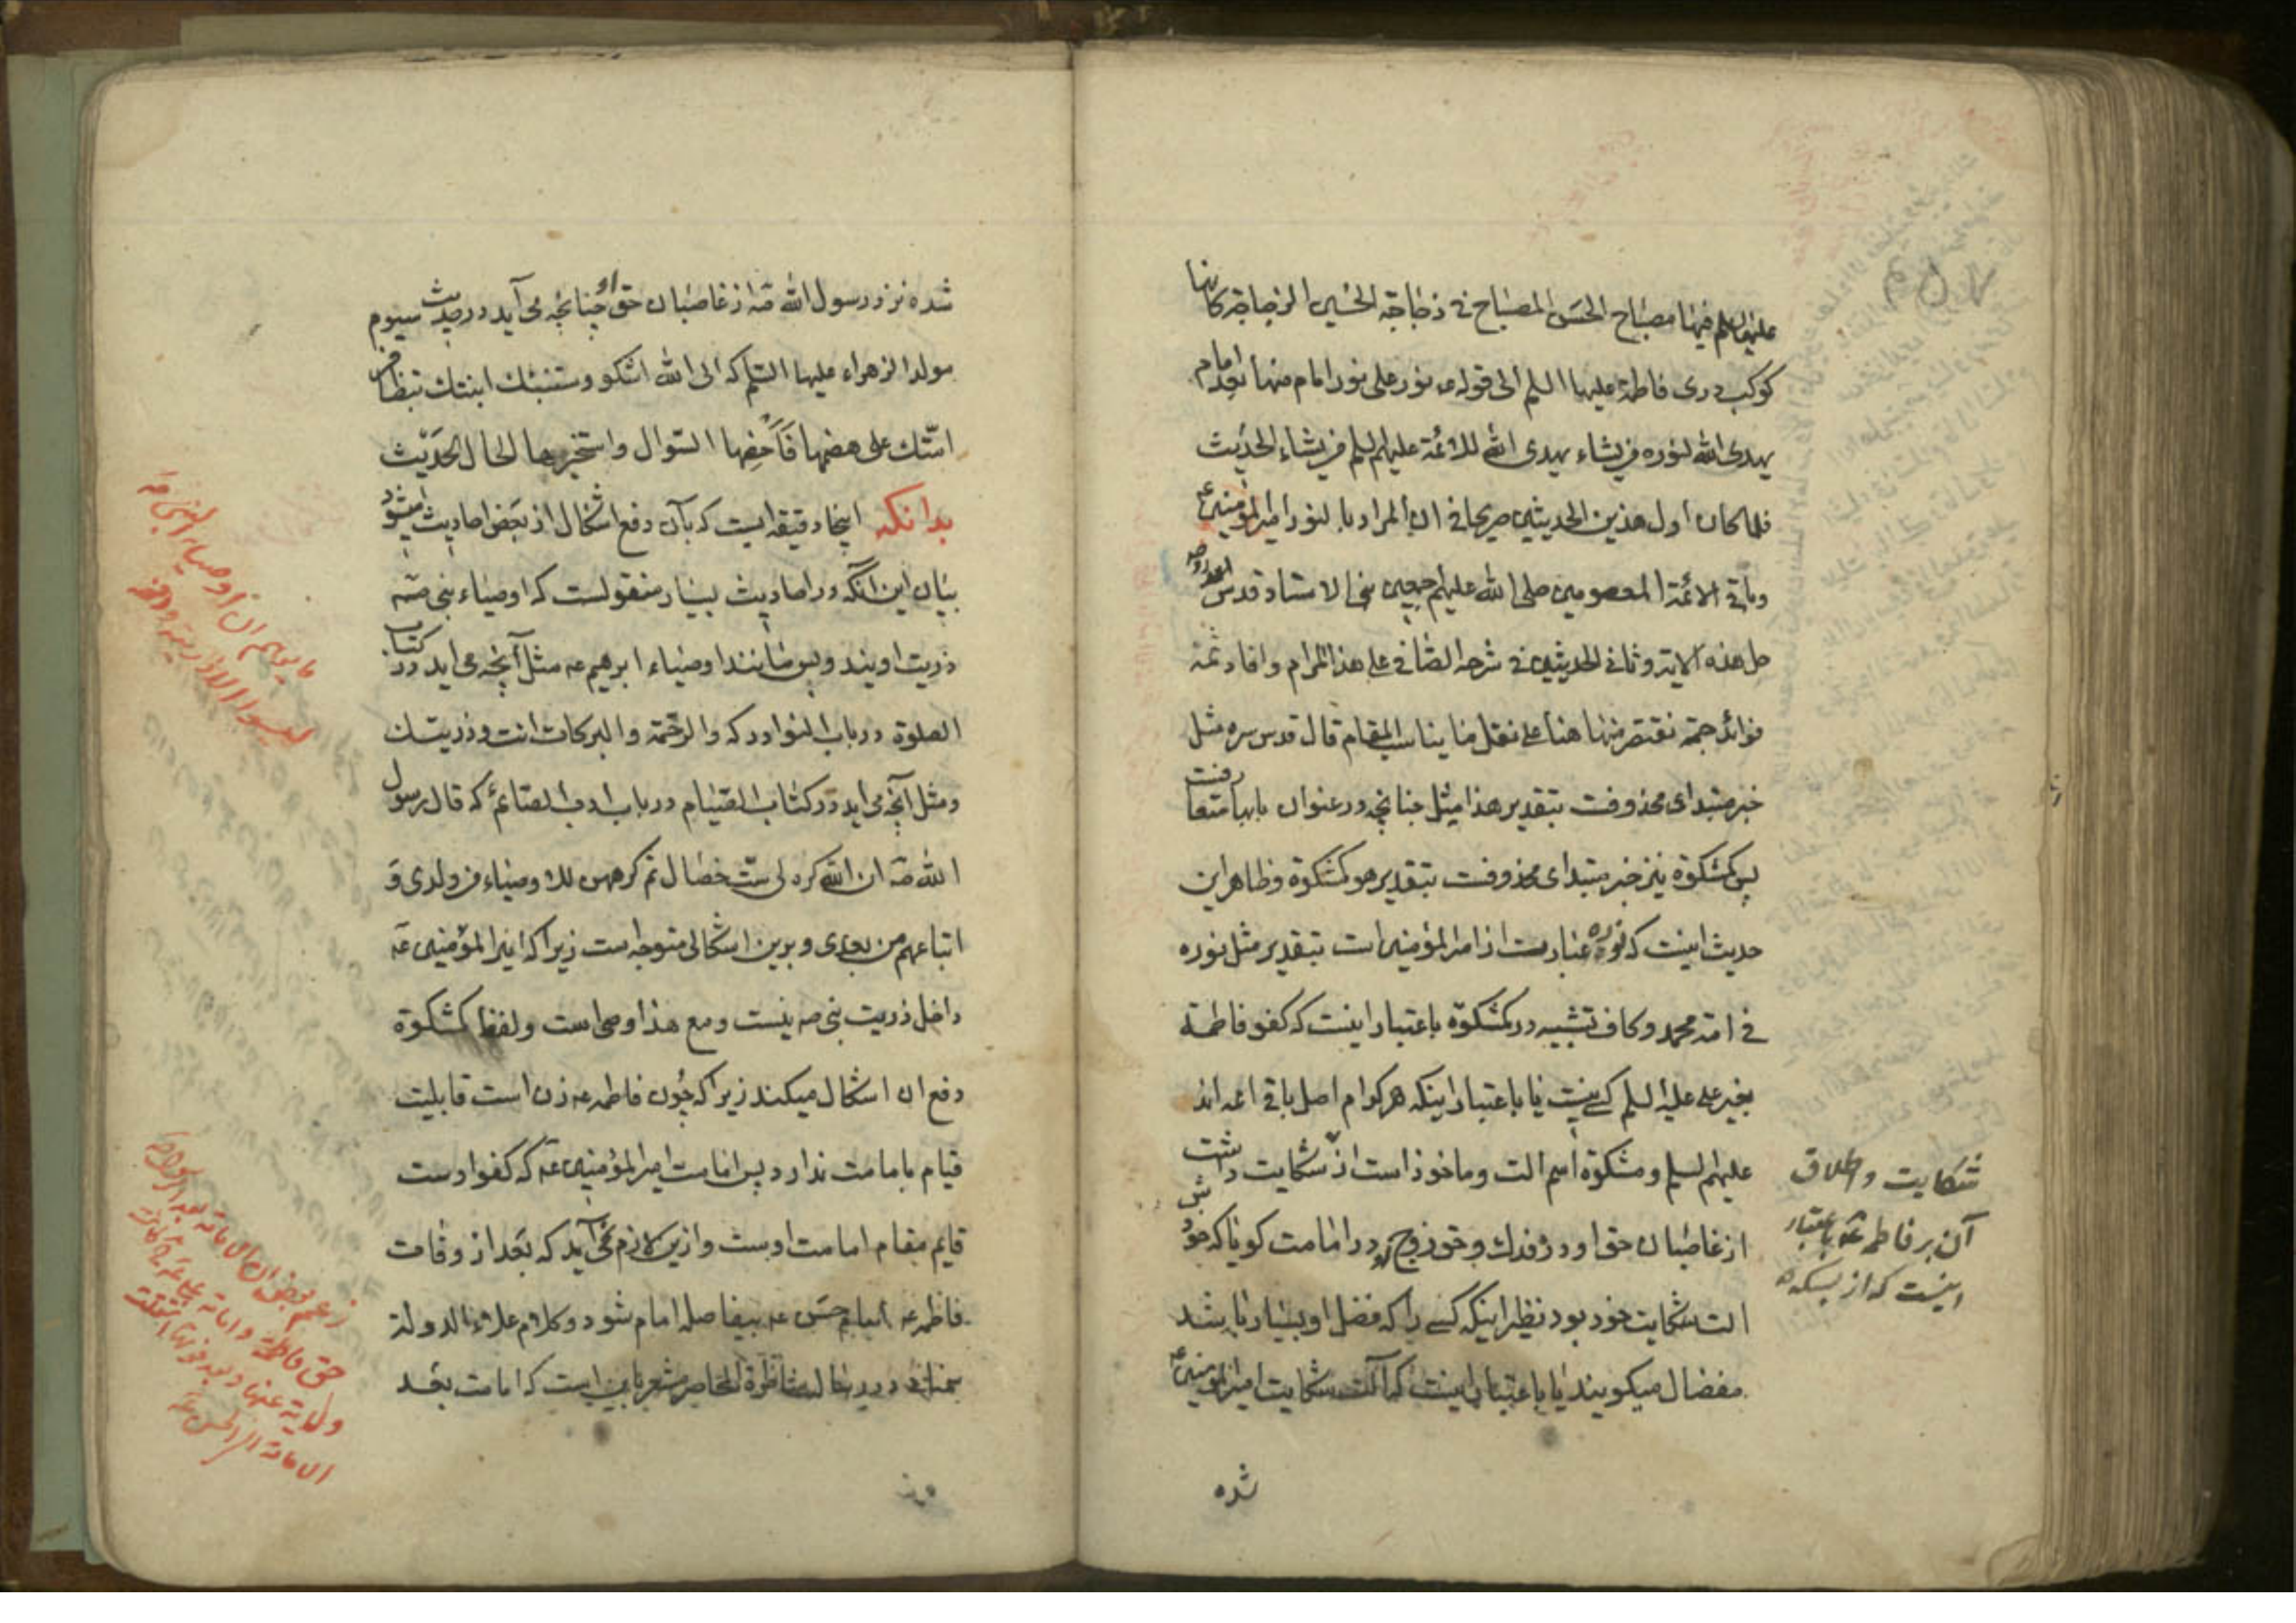 علیها السلم فیها مصباح الحسن المصباح فی زجاجة الحسین الزجاجة کانها
کوکب دری فاطمة علیها السلم الی قوله ع نور علی نور امام منها بعد امام
یهدی الله لنوره من یشاء یهدی الله للائمة علیهم السلم من یشاء الحدیث
فلما کان اول هذین الحدیثین صریحا فی ان المراد بالنور امیر المؤمنین ع
وباقی الائمة المعصومین صلی الله علیهم اجمعین بنی الاستاد قدس الله روحه
حل هذه الایة وثانی الحدیثین فی شرحه الصافی علی هذا المرام وافاد ثمة
فوائد جمة نقتصر منها هنا علی نقل ما یناسب المقام قال قدس سره مثل
خبر مبتدای محذوفست بتقدیر هذا مثل چنانچه در عنوان بابها متعارفست
پس کمشکوة نیز خبر مبتدای محذوفست بتقدیر هو کمشکوة وظاهر این
حدیث اینست که نوره عبارت از امیر المؤمنین است بتقدیر مثل نوره
فی امة محمد وکاف تشبیه در کمشکوة باعتبار اینست که کفو فاطمة
بغیر علی علیه السلم کسی نیست یا باعتبار اینکه هر کدام اصل باقی ائمه اند
علیهم السلم ومشکوة اسم الت وماخوذ است از شکایت داشت
از غاصبان حق او در فدک وحق زوج او در امامت کویا که خودش
الت شکایت خود بود نظیر اینکه کسی را که فضل او بسیار باشد
مفضال میکویند یا باعتبار اینست که آلت شکایت امیر المؤمنین ع
شکایت واطلاق
آن بر فاطمه ع باعتبار
اینست که از بسکه
شده
شده نزد رسول الله ص از غاصبان حق او چنانچه می آید در حدیث سیوم
مولد الزهراء علیها السلم که الی الله اشکو وستنبئک ابنتک بتظافر
امتک علی هضمها فاحفها السؤال واستخبرها الحال الحدیث
بدانکه اینجا دقیقه ایست که بآن دفع اشکال از بعض احادیث میشود
بیان این آنکه در احادیث بسیار منقولست که اوصیاء نبی ص
ذریت اویند وبس مانند اوصیاء ابرهیم ع مثل آنچه می اید در کتاب
الصلوة در باب النوادر که والرحمة والبرکات انت وذریتک
ومثل آنچه می اید در کتاب الصیام در باب ادب الصائم که قال رسول
الله ص ان الله کره لی ست خصال ثم کرههن للاوصیاء من ولدی و
اتباعهم من بعدی وبرین اشکالی متوجه است زیرا که امیر المؤمنین ع
داخل ذریت نبی ص نیست ومع هذا وصی است ولفظ کمشکوة
دفع ان اشکال میکند زیرا که چون فاطمه ع زن است قابلیت
قیام بامامت ندارد پس امامت امیر المؤمنین ع که کفو اوست
قایم مقام امامت اوست وازین لازم نمی آید که بعد از وفات
فاطمه ع امام حسن ع بیفاصله امام شود وکلام علاء الدولة
سمنانی در رساله مناظرة المحاضر مشعر باین است که امامت بعد
ما یوهم ان اوصیاء النبی ص
لیسوا الا ذریته
زعم بعض ان الامامة بعد الرسول
حق فاطمة